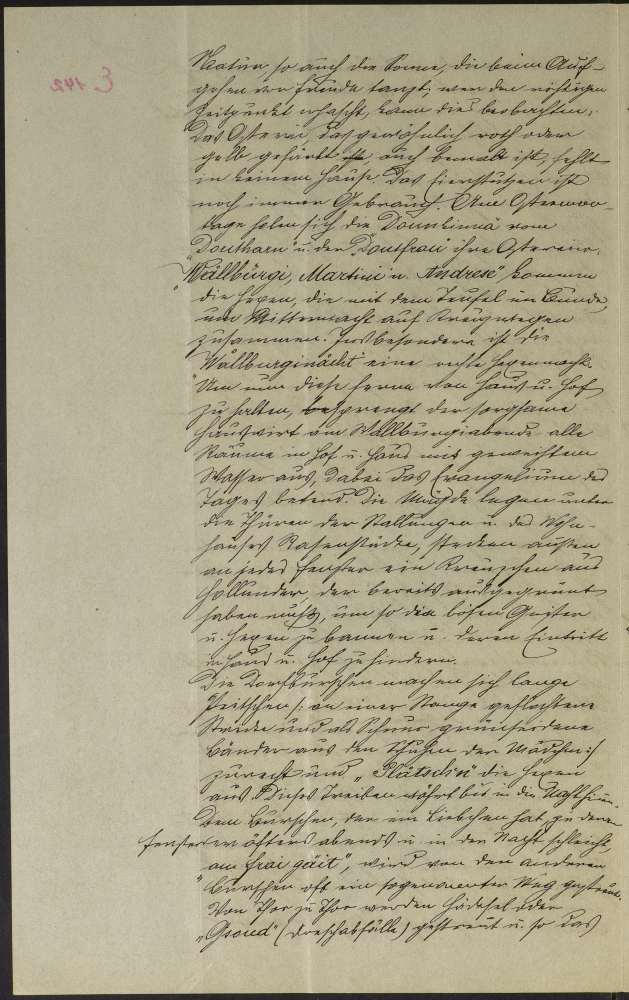 E 142
Natur, so auch die Sonne, die beim Auf-
gehen vor Freude tanzt; wer den richtigen
Zeitpunkt erhascht, kann dies beobachten.
Das Osterei, das gewöhnlich roth oder
gelb gefärbt, auch bemalt ist, fehlt
in keinem Hause. Das Eierstutzen ist
noch immer Gebrauch. Am Ostermon-
tage holen sich die Dounkinna vom
"Doutharn" u. der "Doutfrau" ihre Ostereier.
"Wallburgi, Martini u. Andrese", kommen
die Hexen, die mit dem Teufel im Bunde,
um Mitternacht auf Kreuzwegen
zusammen. Insbesondere ist die
"Wallburginacht" eine rechte Hexennacht.
Um nun diese ferne von Haus u. Hof
zu halten, besprengt der sorgsame
Hauswirt am Wallburgiabende alle
Räume in Hof u. Haus mit geweihtem
Wasser aus, dabei das Evangelium des
Tages betend. Die Mägde legen unter
die Thüren der Stallungen u. des Wohn-
hauses Rasenstücke, stecken außen
an jedes Fenster ein Kreuzchen aus
Hollunder, der bereits ausgegrünt
haben muß, um so die bösen Geister
u. Hexen zu bannen u. deren Eintritt
in Haus u. Hof zu hindern.
Die Dorfburschen machen sich lange
Peitschen /: an einer Stange geflochtene
Stricke und als Schnur grünseidene
Bänder aus den Schuhen der Mädchen :/
zurecht und "Plätschn" die Hexen
aus. Dieses Treiben währt bis in die Nacht hinein.
Dem Burschen, der ein Liebchen hat, zu deren
Fenster er öfters abends u. in der Nacht schleicht,
"am Frai gäit", wird von den anderen
Burschen oft ein sogenannter Weg gestreut.
Von Thor zu Thor werden Häcksel oder
"Gsoud" (Dreschabfälle) gestreut u. so das